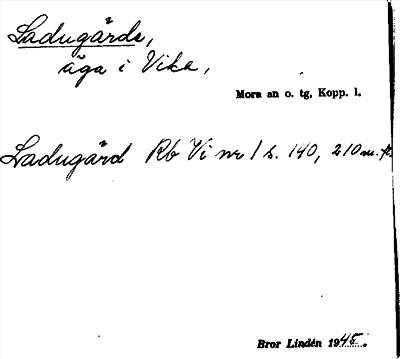 Ladugårds,
äga i Vika,
Mora sn o. tg, Kopp. l.
Ladugård Rb Vi nr 1 s. 140, 210 m. fl.
Bror Lindén 1945.